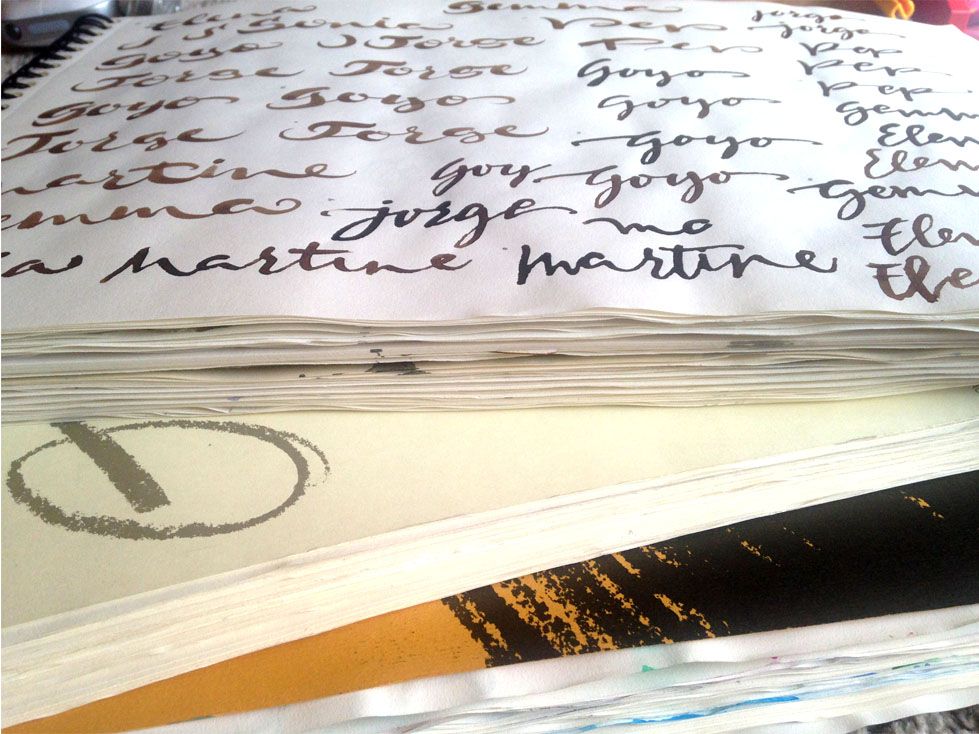 Elena Gemma Jorge
Sonia Pep Jorge
Goyo Jorge Pep Pep
Jorge Jorge Goyo Pep
Goyo Goyo Goyo Pep
Jorge Jorge Goyo Gemm
martine goy Goyo Elen
emma jorge Elen
mo Gemm
a Martine martine Elen
Ele